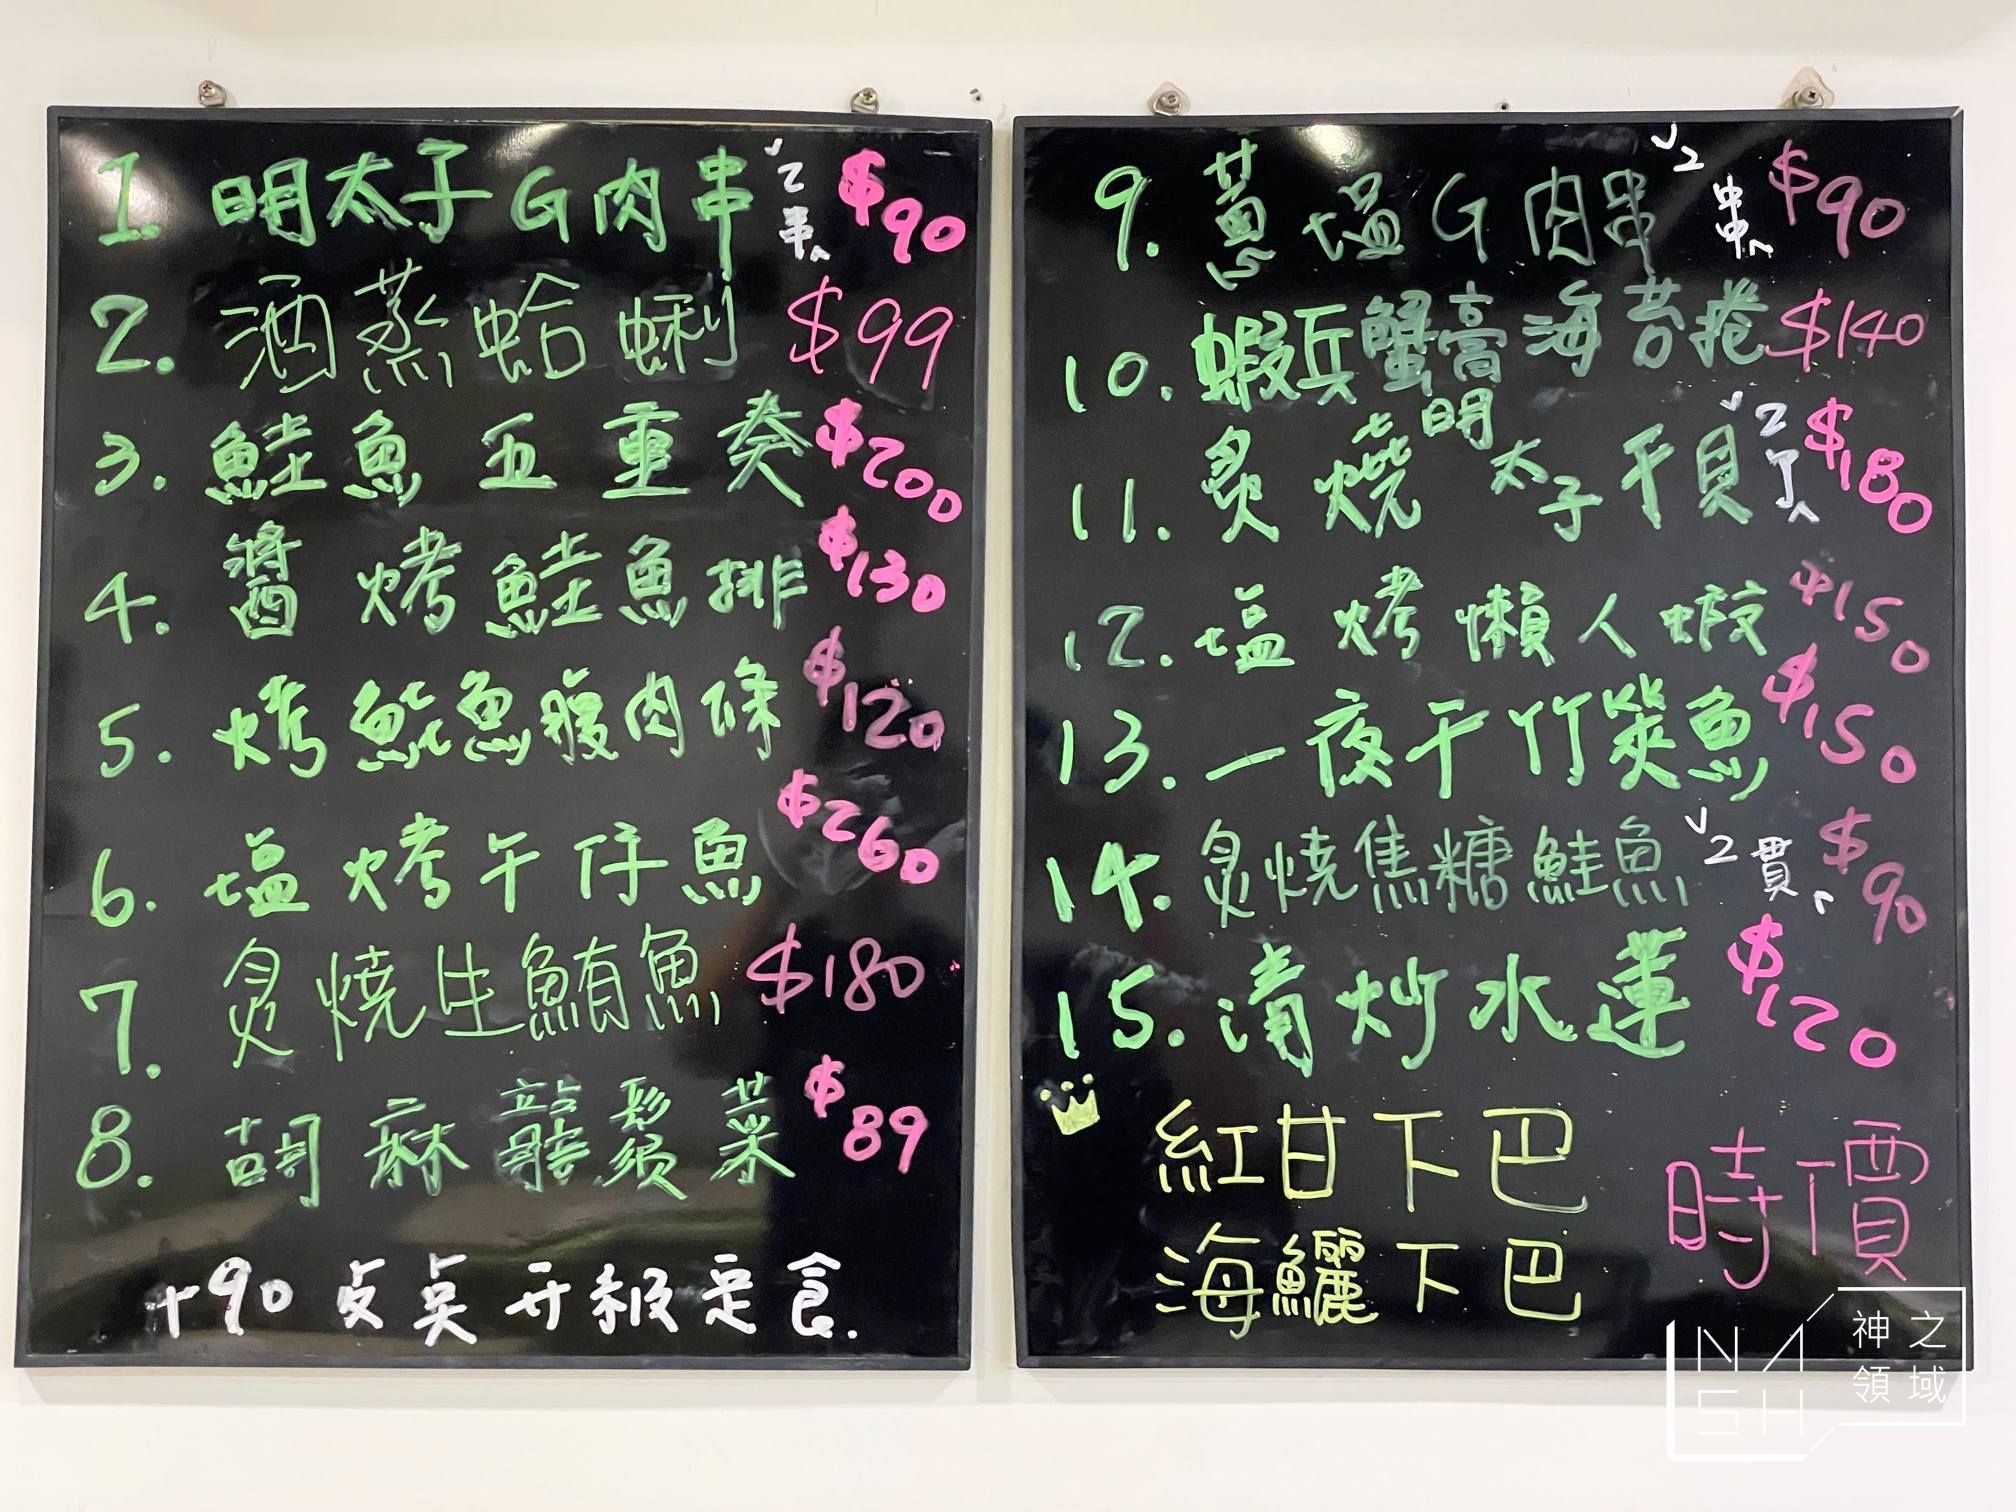 1. 明太子G肉串 2串 $90
2. 酒蒸蛤蜊 $99
3. 鮭魚五重奏 $200
4. 醬烤鮭魚排 $130
5. 烤魠魚腹肉條 $120
6. 塩烤午仔魚 $260
7. 炙燒生鮪魚 $180
8. 胡麻龍鬚菜 $89
+90 升級定食.
9. 蔥塩G肉串 2串 $90
10. 蝦兵蟹膏海苔捲 $140
11. 炙燒明太子干貝 2了 $180
12. 塩烤懶人蝦 $150
13. 一夜干竹筴魚 $150
14. 炙燒焦糖鮭魚 2貫 $90
15. 清炒水蓮 $120
紅甘下巴
海鱺下巴
時價
NASH 神之領域